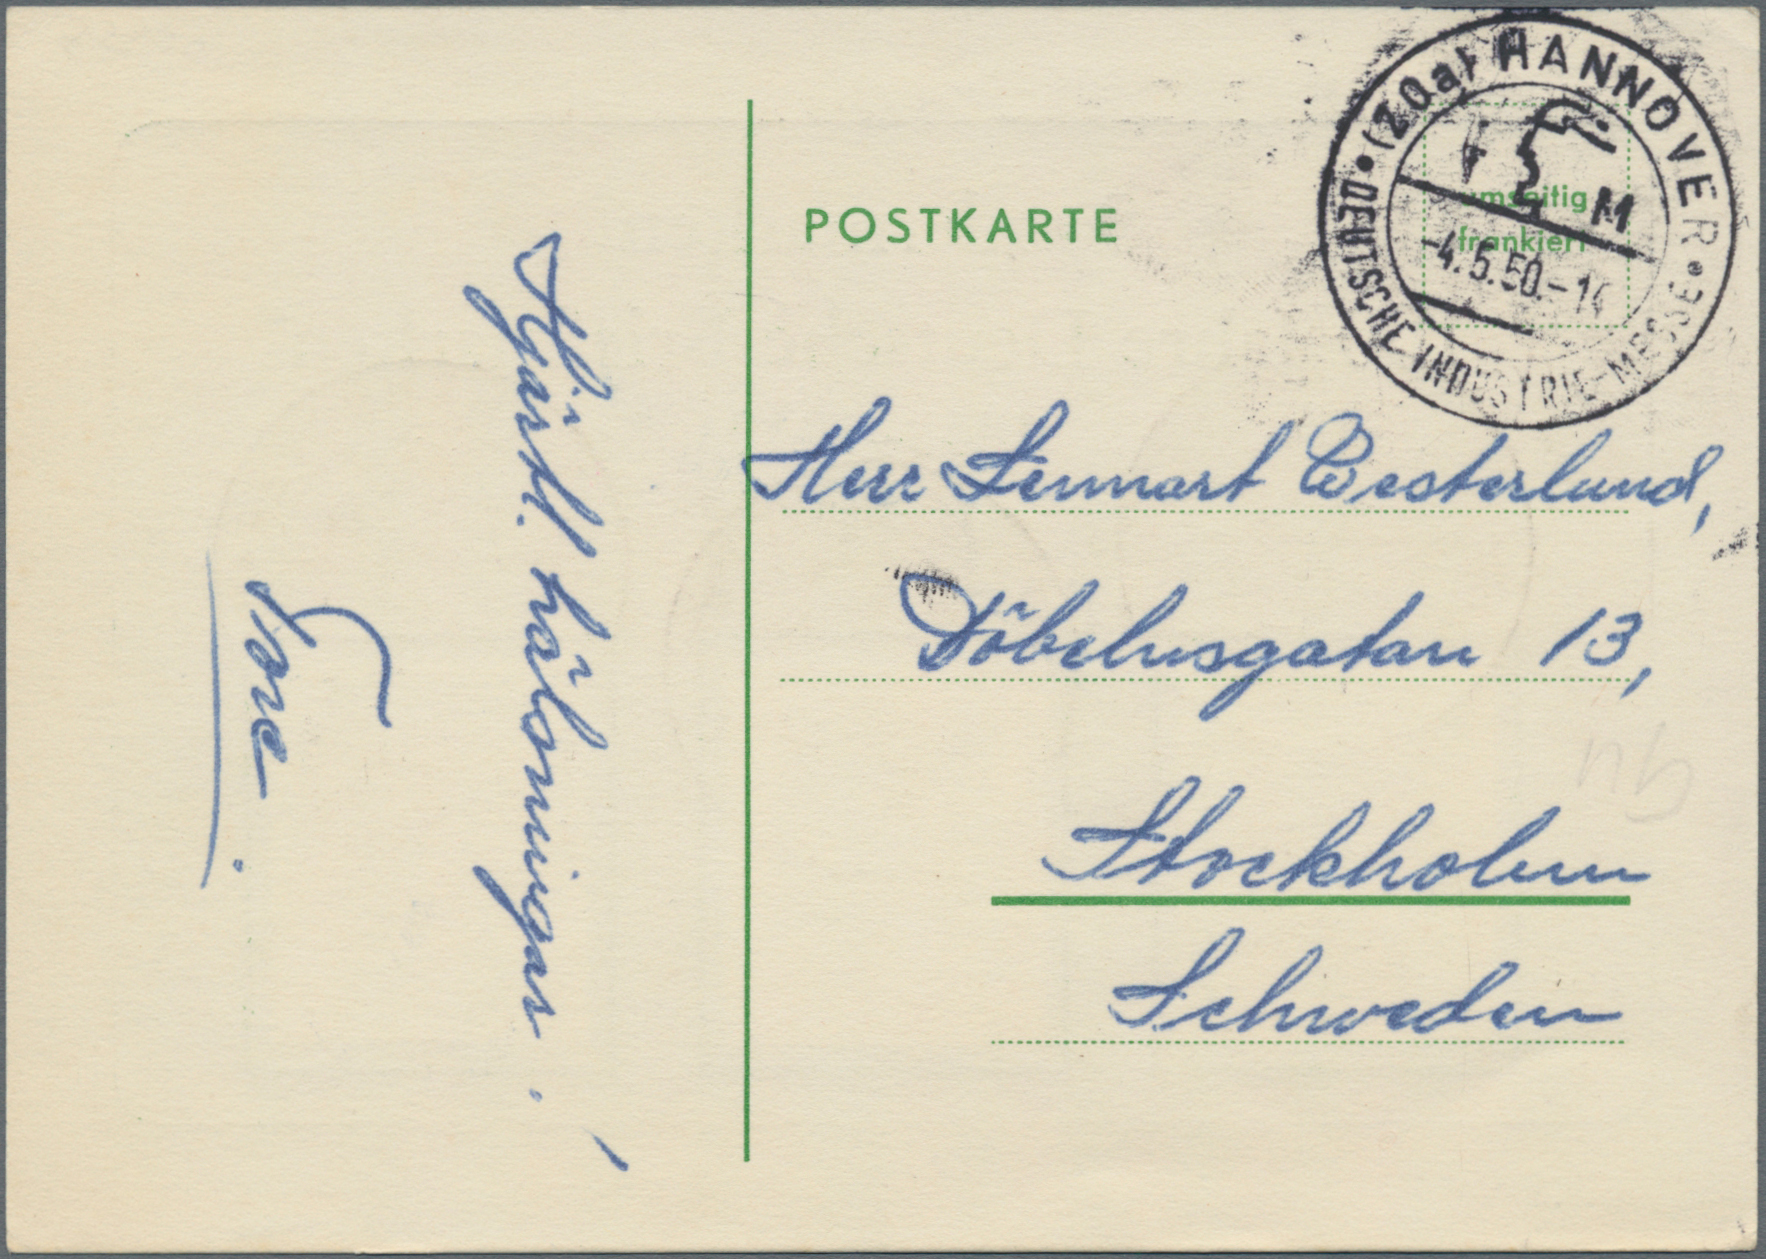 Hjärtl. hälsningar!
Tore.
POSTKARTE
(20a) HANNOVER
DEUTSCHE INDUSTRIE-MESSE
M
-4.5.50.-14
umseitig
frankiert
Herr Lennart Westerlund,
Döbelnsgatan 13,
Stockholm
Schweden